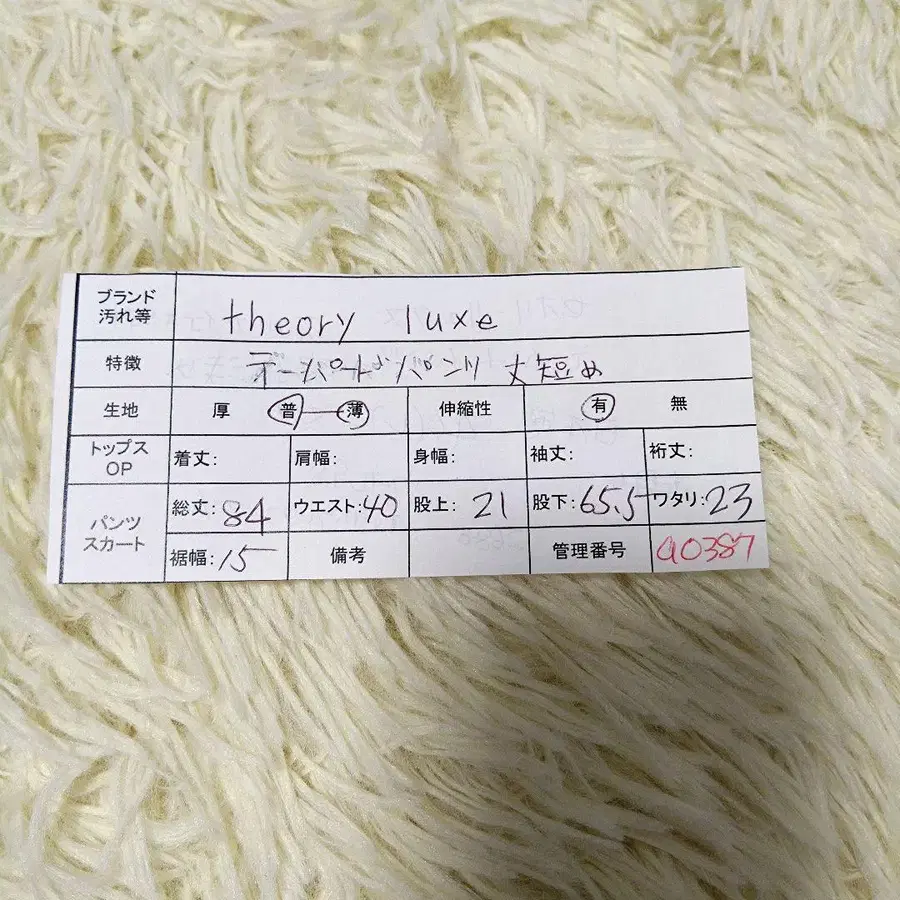 ブランド
汚れ等
theory luxe
特徴
テーパードパンツ 丈短め
生地 厚 普 薄 伸縮性 有 無
トップス
OP
着丈: 肩幅: 身幅: 袖丈: 裄丈:
パンツ
スカート
総丈:84 ウエスト:40 股上:21 股下:65.5 ワタリ:23
裾幅:15 備考 管理番号 a0387